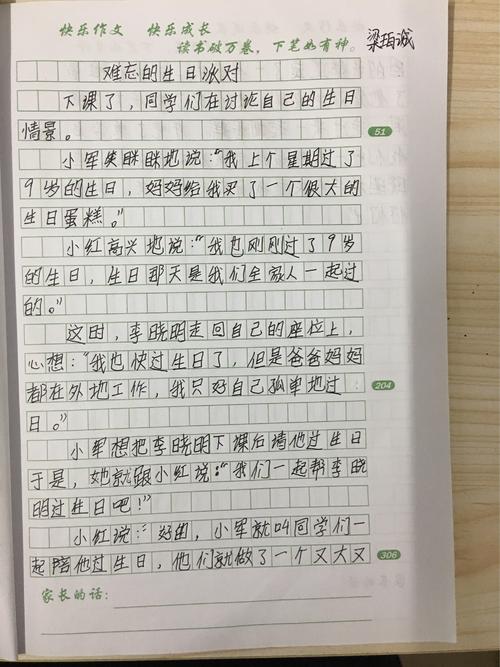 快乐作文 快乐成长
读书破万卷，下笔如有神。 梁珀诚
难忘的生日派对
下课了，同学们在讨论自己的生日
情景。
51
小军笑眯眯地说：“我上个星期过了
9岁的生日，妈妈给我买了一个很大的
生日蛋糕。”
小红高兴地说：“我也刚刚过了9岁
的生日，生日那天是我们全家人一起过
的。”
这时，李晓明走回自己的座位上，
心想：“我也快过生日了，但是爸爸妈妈
都在外地工作，我只好自己孤单地过
204
日。”
小军想把李晓明下课后请他过生日
于是，她就跟小红说：“我们一起帮李晓
明过生日吧！”
小红说：“好的，小军就叫同学们一
起陪他过生日，他们就做了一个又大又
306
家长的话：